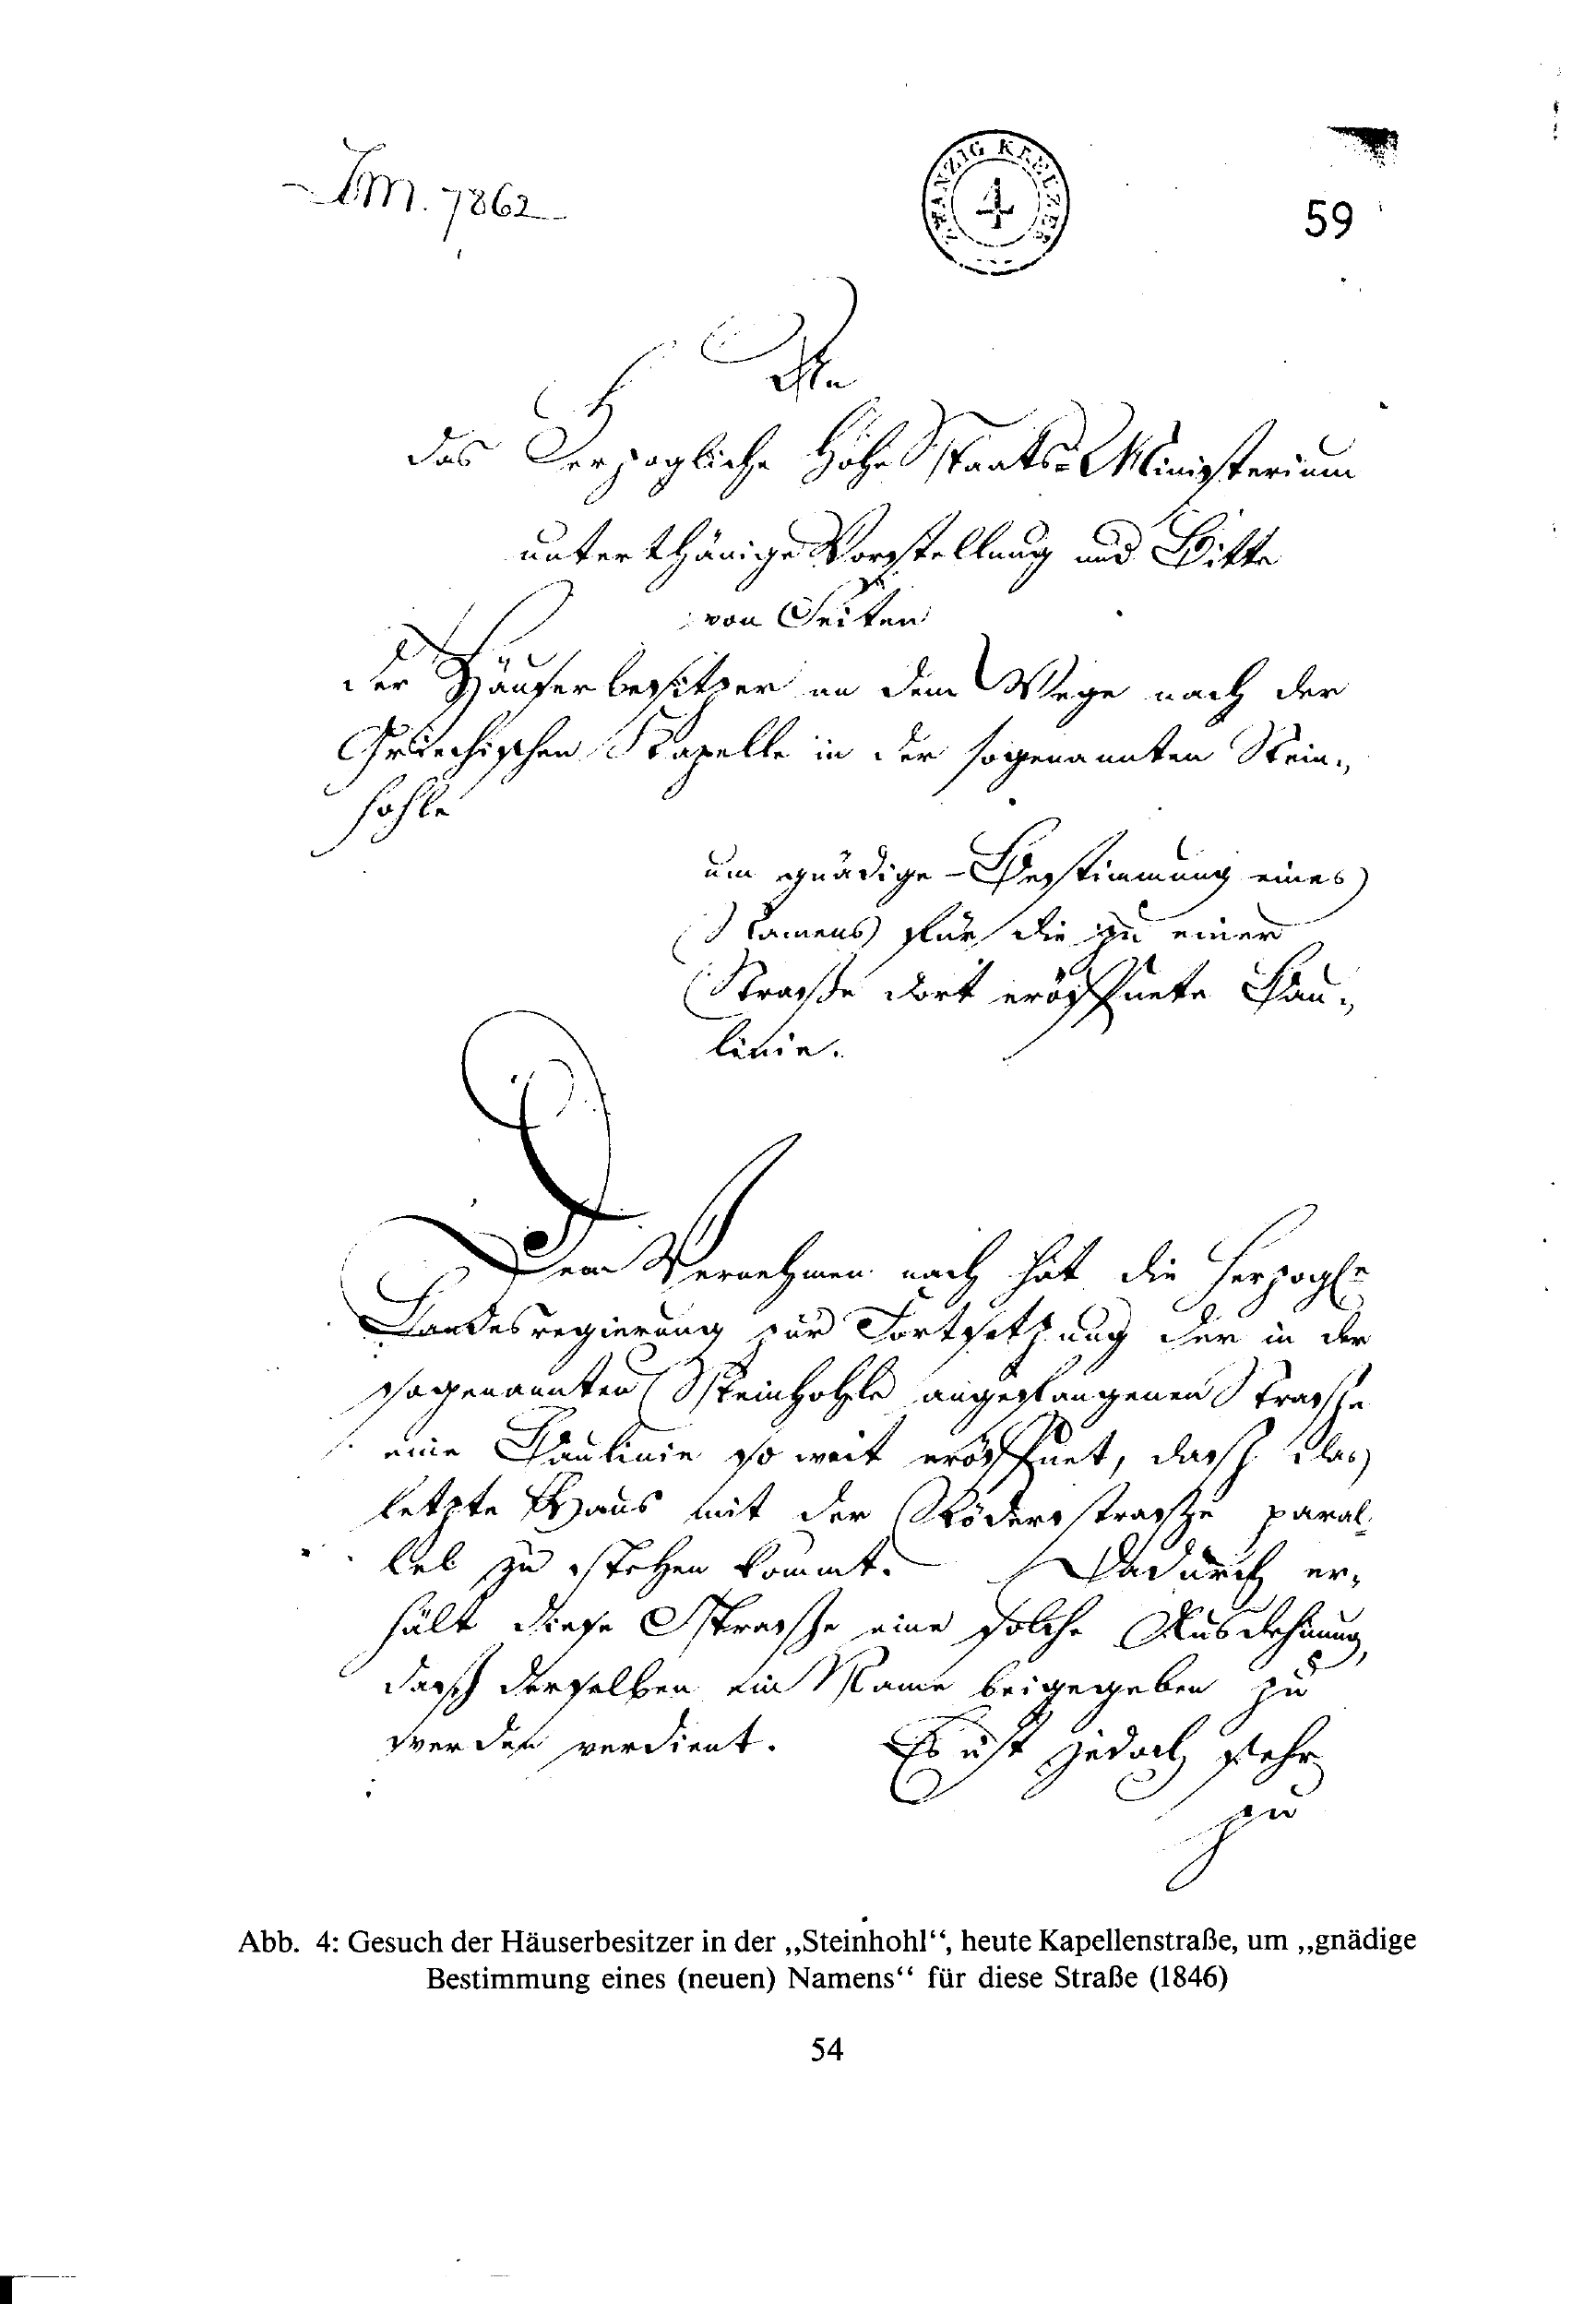 Im. 7862
ZWANZIG KREUZER
4
59
An
das Herzogliche Hohe Staats-Ministerium
unterthänige Vorstellung und Bitte
von Seiten
der Häuserbesitzer an dem Wege nach der
Griechischen Kapelle in der sogenannten Stein-
hohle
um gnädige Bestimmung eines
Namens für die zu einer
Strasse dort eröffnete Bau-
linie.
Dem Vernehmen nach hat die Herzogl.
Landesregierung zur Fortsetzung der in der
sogenannten Steinhohle angefangenen Strasse
eine Baulinie so weit eröffnet, dass das
letzte Haus mit der Röderstrasse paral-
lel zu stehen kommt. Dadurch er-
hält diese Strasse eine solche Ausdehnung,
dass derselben ein Name beigegeben zu
werden verdient. Es ist jedoch sehr
zu
Abb. 4: Gesuch der Häuserbesitzer in der „Steinhohl“, heute Kapellenstraße, um „gnädige
Bestimmung eines (neuen) Namens“ für diese Straße (1846)
54